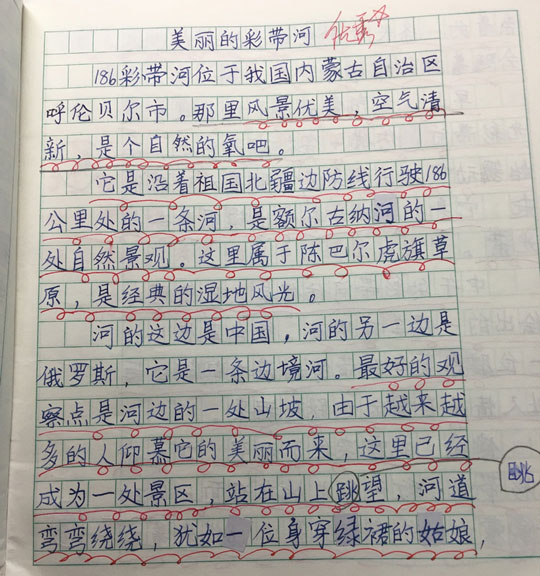 美丽的彩带河 优秀
186彩带河位于我国内蒙古自治区
呼伦贝尔市。那里风景优美，空气清
新，是个自然的氧吧。
它是沿着祖国北疆边防线行驶186
公里处的一条河，是额尔古纳河的一
处自然景观。这里属于陈巴尔虎旗草
原，是经典的湿地风光。
河的这边是中国，河的另一边是
俄罗斯，它是一条边境河。最好的观
察点是河边的一处山坡，由于越来越
多的人仰慕它的美丽而来，这里已经
成为一处景区，站在山上跳望，河道
眺
弯弯绕绕，犹如一位身穿绿裙的姑娘，